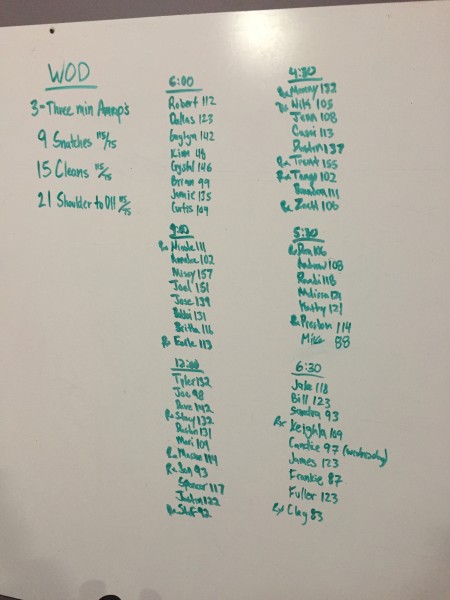 WOD
3-Three min Amrap's
9 Snatches 115/75
15 Cleans 115/75
21 Shoulder to OH 115/75
6:00
Robert 112
Dallas 123
142
Kim 46
Crystal 146
Brian 99
Jamie 135
Curtis 109
9:00
Rx Nicole 111
Annalee 102
Missy 157
Joel 151
Jose 139
Bobbi 131
Britha 116
Rx Earle 113
12:00
Tyler 132
Joe 98
Dave 142
Rx Stacy 132
Dustin 131
Mari 109
Rx Mason 119
Rx Ben 93
Spencer 117
Justin 122
Rx Stef 92
4:30
Rx Manny 132
Niki 105
Jenn 108
Cassi 113
Dustin 137
Rx Trent 155
Rx Tango 102
Brandon 111
Rx Zach 106
5:30
Rx Dea 106
Andrew 108
Randi 118
Melissa 121
Kathy 121
Rx Preston 114
Mike 88
6:30
Jake 118
Bill 123
Sandra 93
Rx Keighla 109
Candice 97
James 123
Frankie 87
Fuller 123
Rx Clay 83